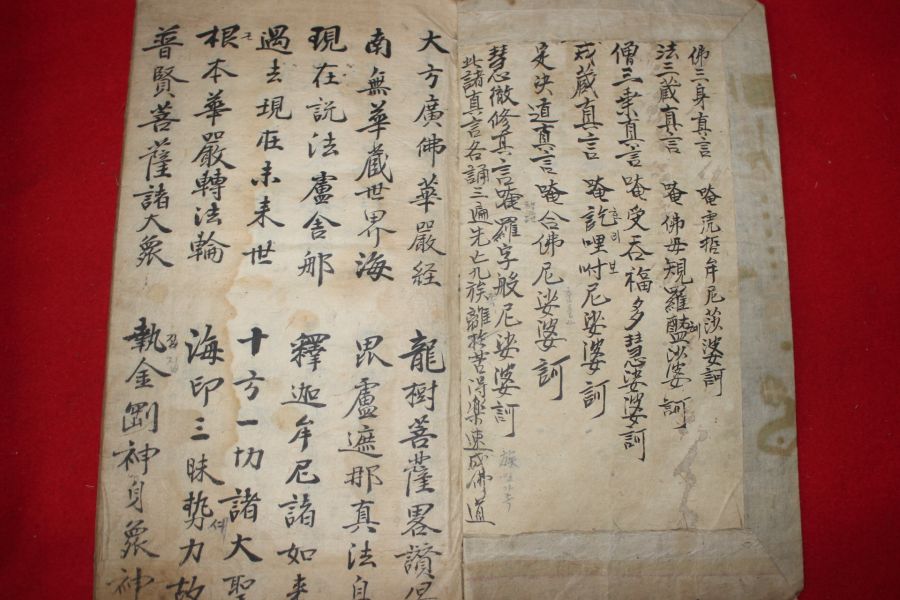 佛三身真言 唵虎哲牟尼莎婆訶
法三藏真言 唵佛母規羅醯娑婆訶
僧三乘真言 唵受吞福多慧娑婆訶
戒藏真言 唵訖哩吽尼娑婆訶
定決道真言 唵合佛尼娑婆訶
慧徹修真言 唵羅字般尼娑婆訶
此諸真言各誦三遍先亡九族離苦得樂速成佛道
大方廣佛華嚴経 龍樹菩薩畧讃偈
南無華藏世界海 毘盧遮那真法身
現在説法盧舍那 釋迦牟尼諸如来
過去現在未来世 十方一切諸大聖
根本華嚴轉法輪 海印三昧勢力故
普賢菩薩諸大衆 執金剛神身衆神